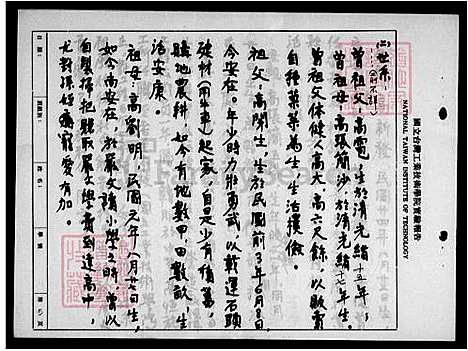 國立台灣工業技術學院實驗報告
NATIONAL TAIWAN INSTITUTE OF TECHNOLOGY
(三)世系：
曾祖父：高電，生於清光緒十五年；
曾祖母：高張簡沙，生於清光緒十七年生。
曾祖父体健人高大，高六尺餘，以販賣
自種菜蔬為生，生活撲儉。
祖父：高開生，生於民國前3年6月8日，
今安在。年少時力壯勇武，以載運石頭
建材(用牛車)起家，自是少有積蓄，
購地農耕，如今有地數甲，田數畝，生
活安康。
祖母：高劉明，民國元年八月廿八日生，
如今尚安在，於嚴父讀小學之時，曾以
自製掃把賺取嚴父學費到達高中，
尤對孫侄痛寵愛有加。